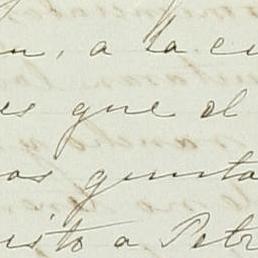 n, a la cu
es que el
os gusta
isto a Petr